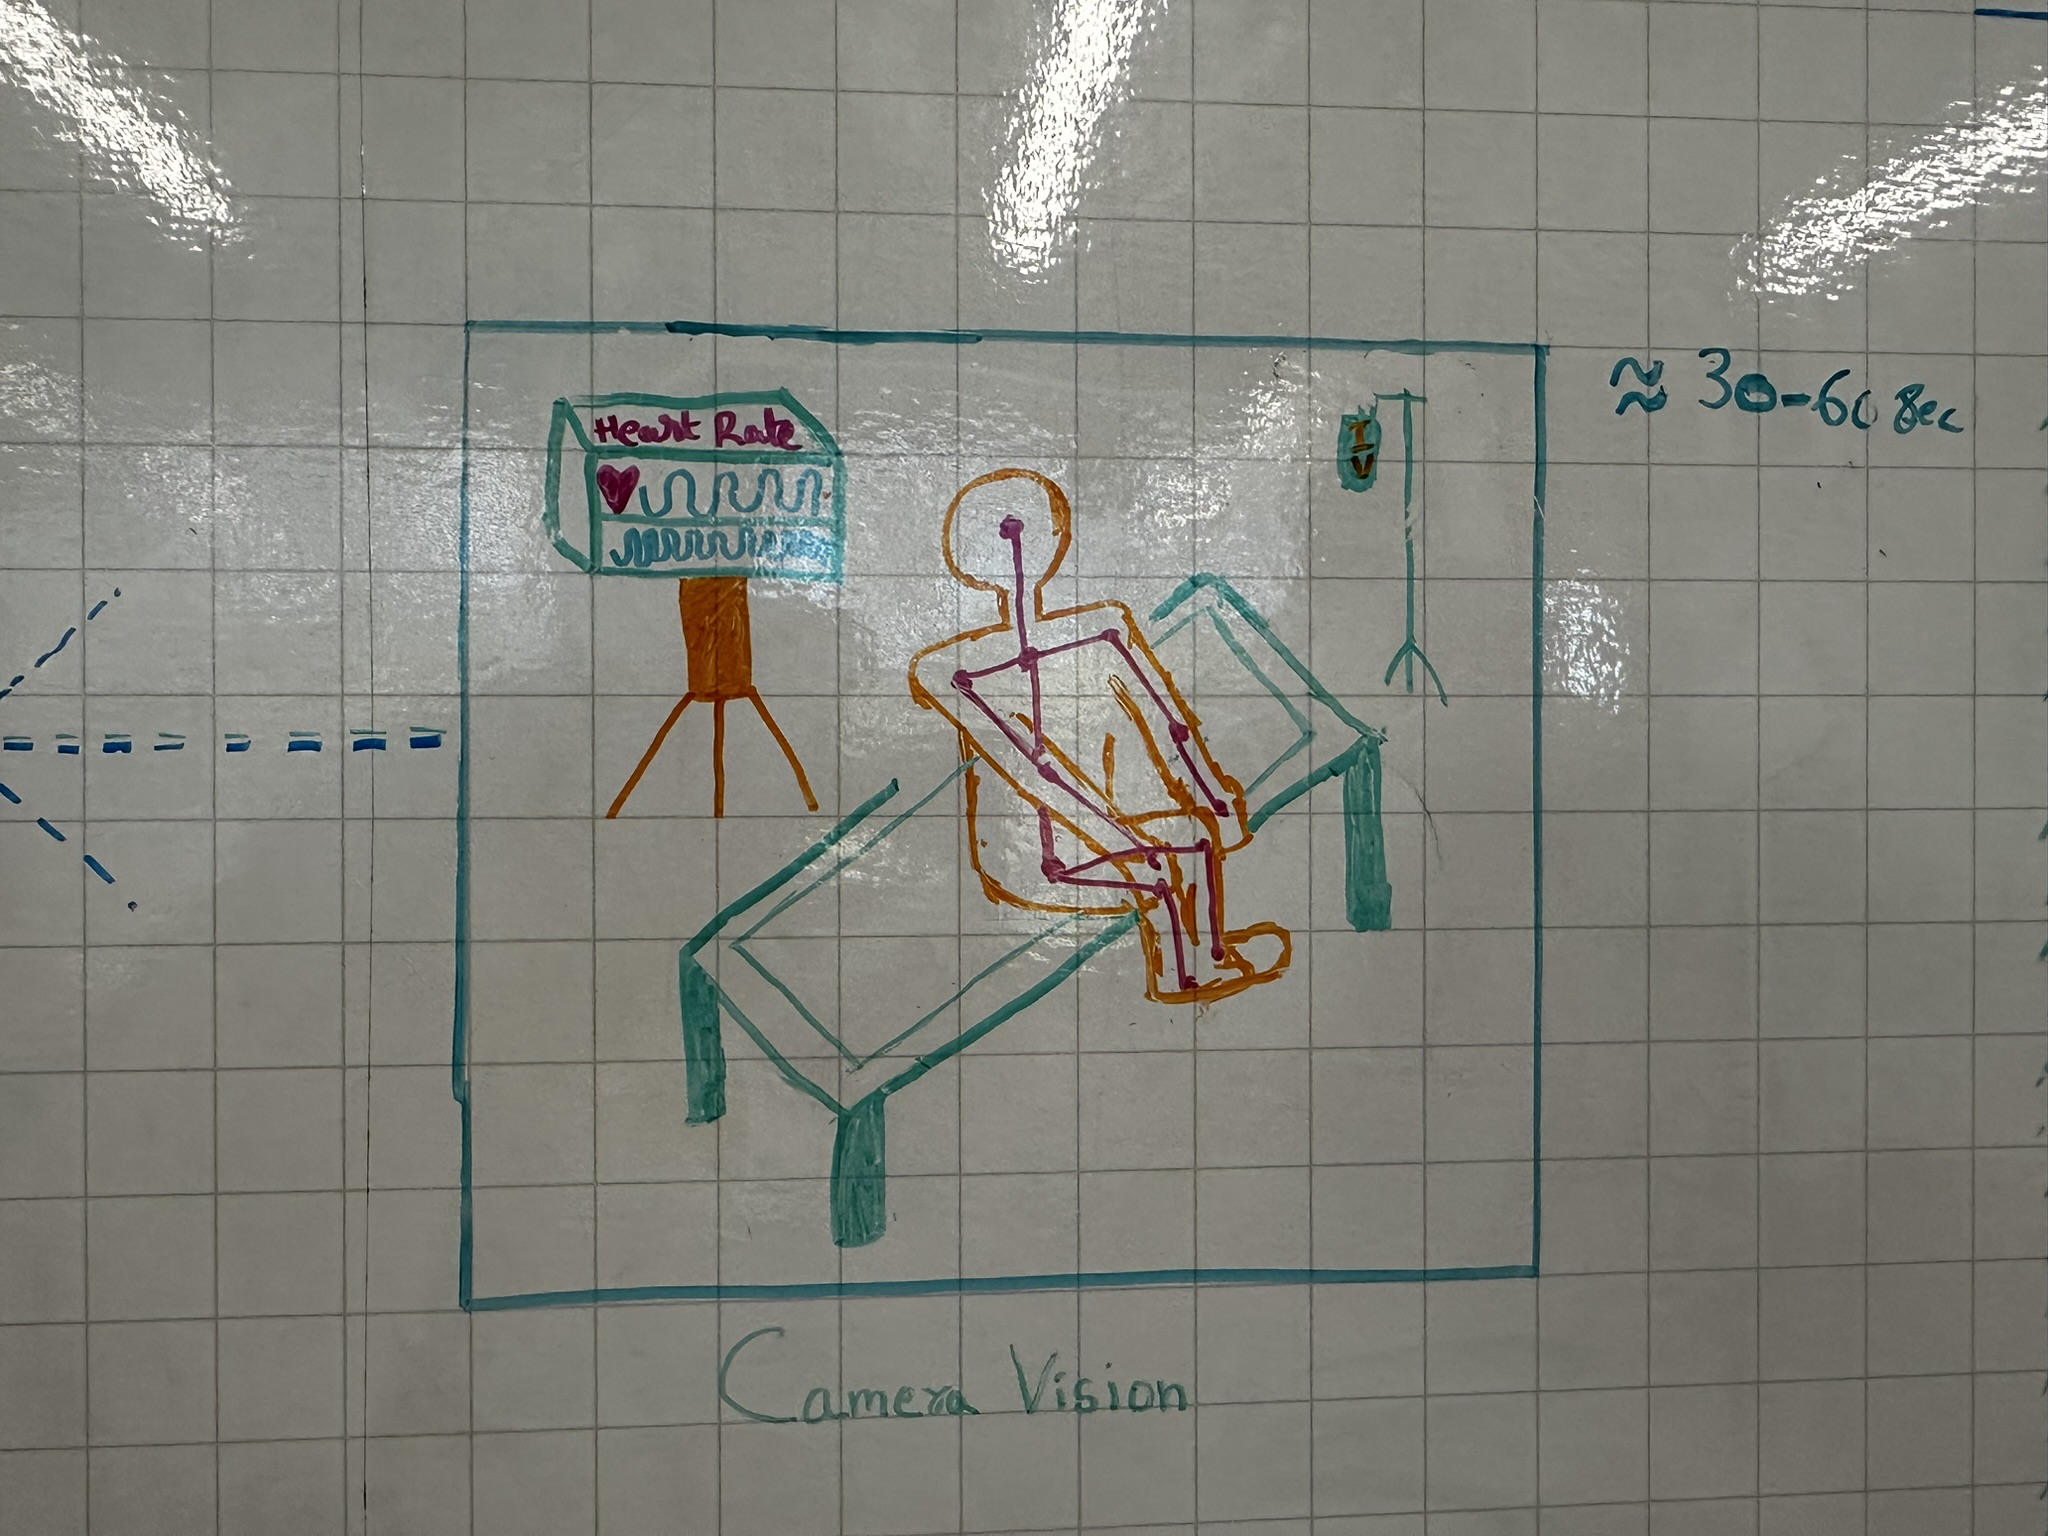 Heart Rate
IV
≈ 30-60 Sec
Camera Vision